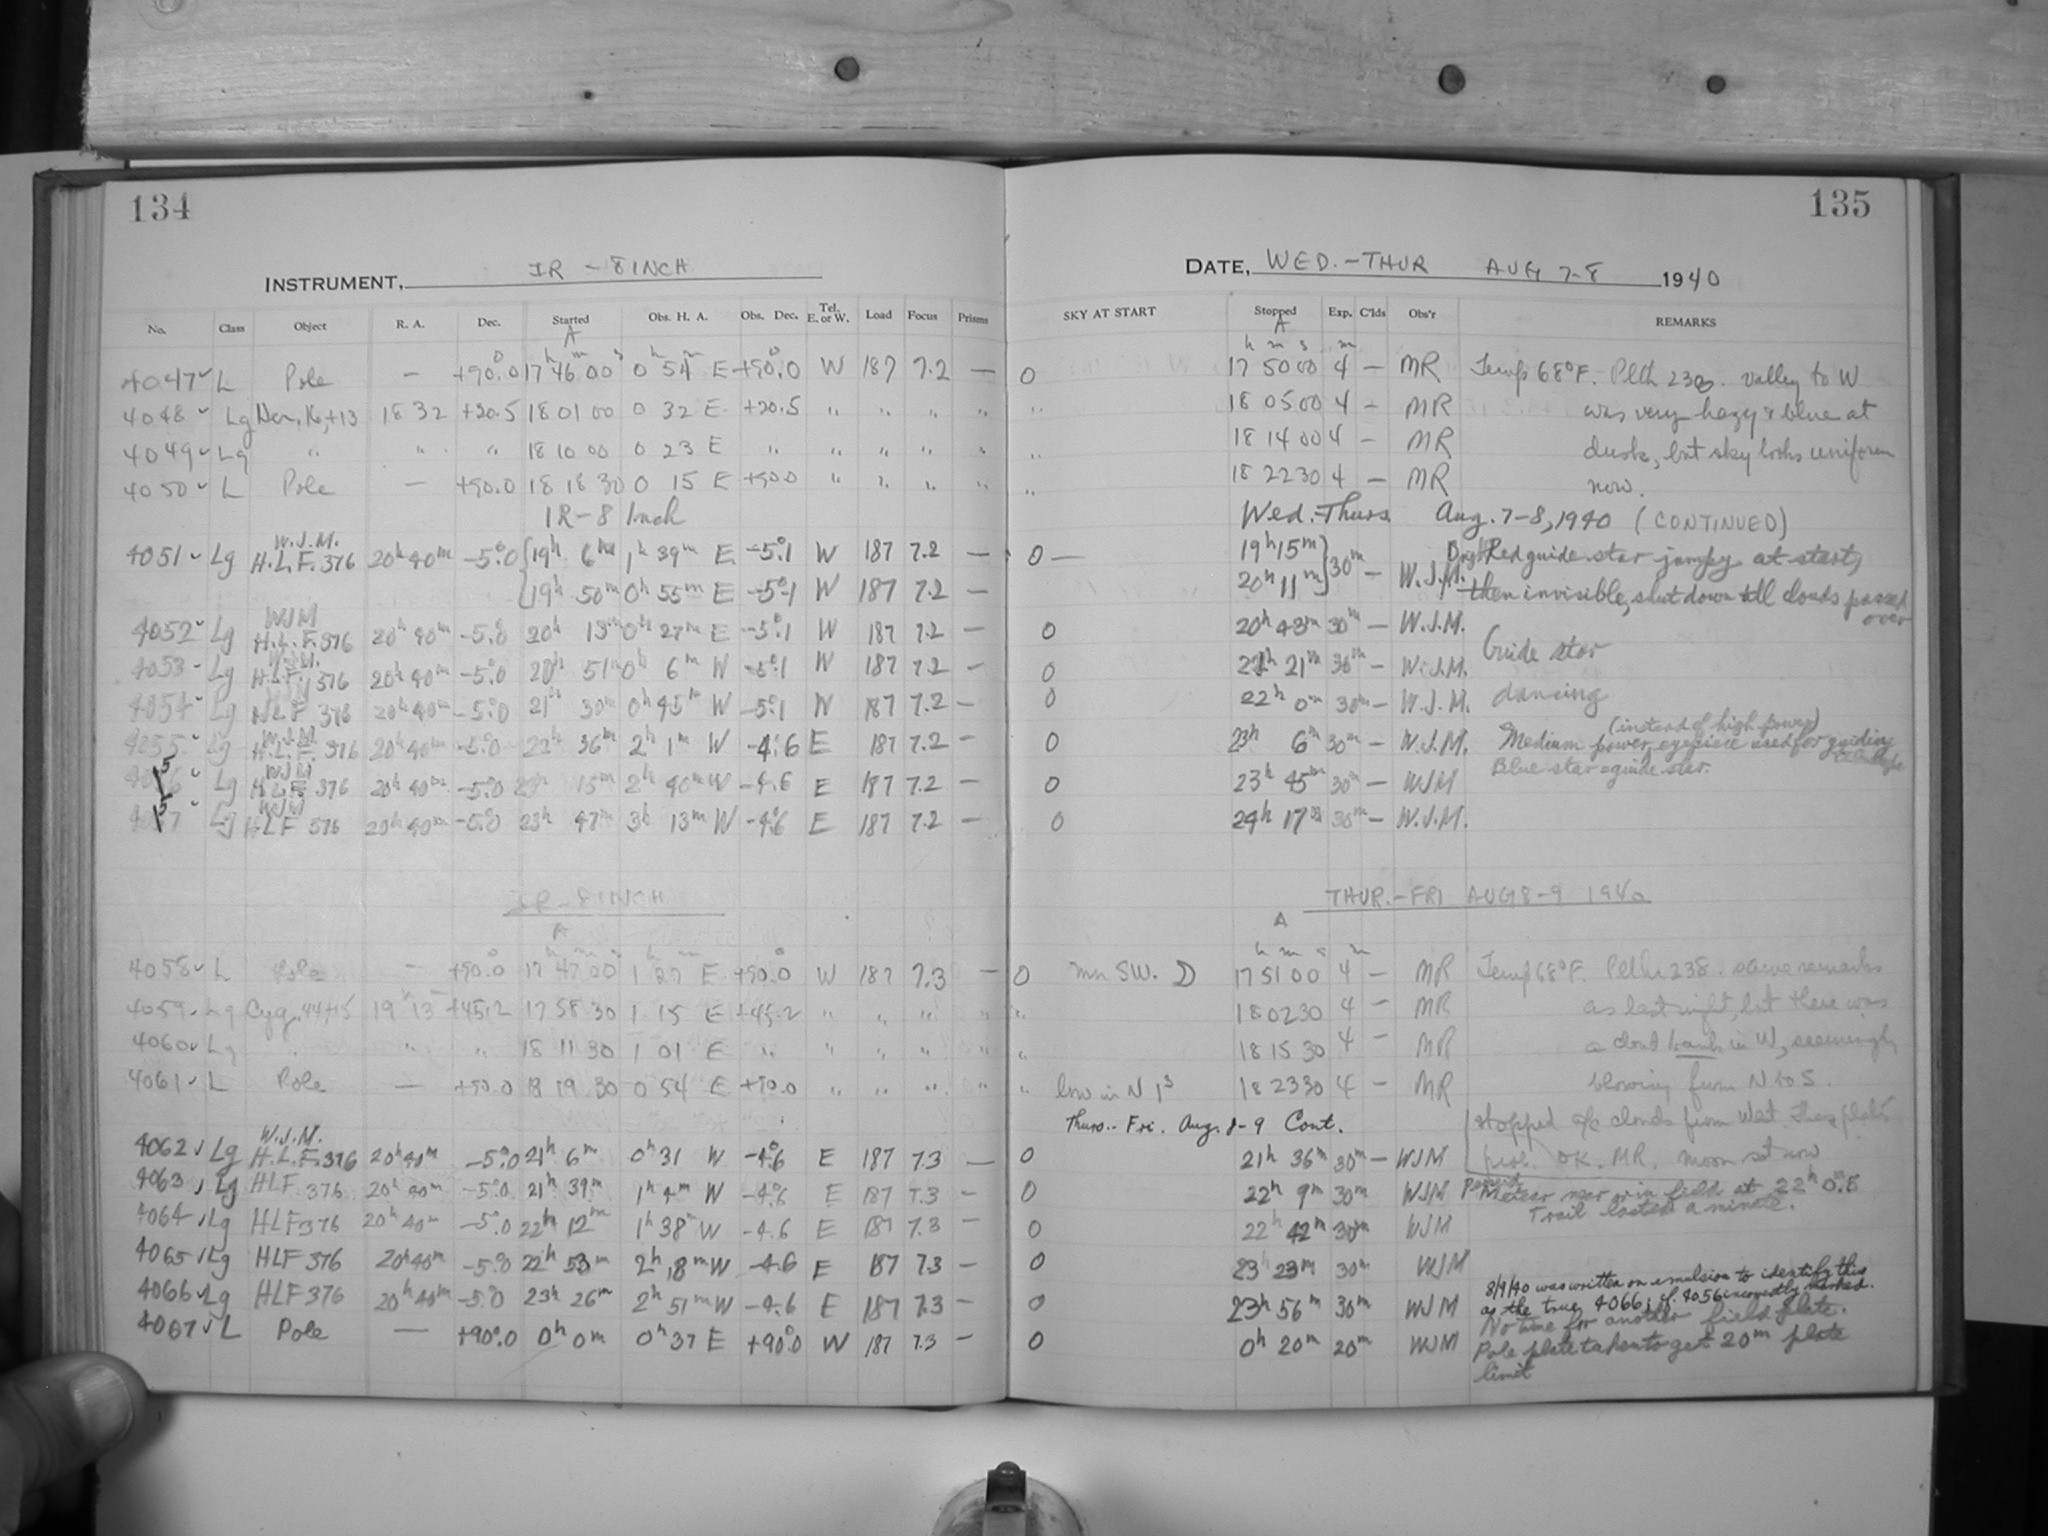 134
135
INSTRUMENT, IR - 8 INCH
DATE, WED. - THUR AUG 7-8 1940
No. Class Object R. A. Dec. Started Obs. H. A. Obs. Dec. Tel. E. or W. Load Focus Prisms SKY AT START Stopped Exp. C'lds Obs'r REMARKS
A A
h m s h m h m s m
4047 L Pole — +90.0 17 46 00 0 54 E +90.0 W 187 7.2 — 0 17 50 00 4 — MR Temp 68°F. valley to W
4048 Lg 18 32 +20.5 18 01 00 0 32 E +20.5 " " " " " 18 05 00 4 — MR was very hazy & blue at
4049 Lg " " " 18 10 00 0 23 E " " " " " " 18 14 00 4 — MR dusk, but sky looks uniform
4050 L Pole — +90.0 18 18 30 0 15 E +90.0 " " " " " 18 22 30 4 — MR now.
IR-8 Inch Wed.-Thurs Aug. 7-8, 1940 (CONTINUED)
4051 Lg W.J.M. H.L.F. 376 20h 40m -5.0 19h 6m 1h 39m E -5.1 W 187 7.2 — 0 — 19h 15m 30m — W.J.M. Red guide star jumpy at start,
19h 50m 0h 55m E -5.1 W 187 7.2 — 20h 11m then invisible, shut down till clouds passed over
4052 Lg WJM H.L.F. 376 20h 40m -5.0 20h 13m 0h 27m E -5.1 W 187 7.2 — 0 20h 43m 30m — W.J.M. Guide star
4053 Lg W.J.M. H.L.F. 376 20h 40m -5.0 20h 51m 0h 6m W -5.1 W 187 7.2 — 0 21h 21m 30m — W.J.M.
4054 Lg HLF 376 20h 40m -5.0 21h 30m 0h 45m W -5.1 W 187 7.2 — 0 22h 0m 30m — W.J.M. dancing
4055 Lg W.J.M. H.L.F. 376 20h 40m -5.0 22h 36m 2h 1m W -4.6 E 187 7.2 — 0 23h 6m 30m — W.J.M. Medium power (instead of high power) eyepiece used for guiding
4056 Lg WJM HLF 376 20h 40m -5.0 23h 15m 2h 40m W -4.6 E 187 7.2 — 0 23h 45m 30m — WJM Blue star = guide star.
4057 Lg WJM HLF 376 20h 40m -5.0 23h 47m 3h 13m W -4.6 E 187 7.2 — 0 24h 17m 30m — W.J.M.
IR - 8 INCH THUR.-FRI AUG 8-9 1940
A A
h m s h m h m s m
4058 L Pole — +90.0 17 47 00 1 27 E +90.0 W 187 7.3 — 0 SW. 17 51 00 4 — MR Temp 68°F. same remarks
4059 Lg Cyg. 44+15 19 13 +45.2 17 58 30 1 15 E +45.2 " " " " " 18 02 30 4 — MR as last night, but there was
4060 Lg " " " 18 11 30 1 01 E " " " " " " 18 15 30 4 — MR a cloud bank in W, seemingly
4061 L Pole — +90.0 18 19 30 0 54 E +90.0 " " " " " low in N 18 23 30 4 — MR blowing from N to S.
Thurs.- Fri. Aug. 8-9 Cont. stopped clouds from West
4062 Lg W.J.M. H.L.F. 376 20h 40m -5.0 21h 6m 0h 31 W -4.6 E 187 7.3 — 0 21h 36m 30m — WJM OK. MR. Moon set now
4063 Lg HLF 376 20h 40m -5.0 21h 39m 1h 4m W -4.6 E 187 7.3 — 0 22h 9m 30m WJM Meteor near or in field at 22h 0m.8
4064 Lg HLF 376 20h 40m -5.0 22h 12m 1h 38m W -4.6 E 187 7.3 — 0 22h 42m 30m WJM Trail lasted a minute.
4065 Lg HLF 376 20h 40m -5.0 22h 53m 2h 18m W -4.6 E 187 7.3 — 0 23h 23m 30m WJM
4066 Lg HLF 376 20h 40m -5.0 23h 26m 2h 51m W -4.6 E 187 7.3 — 0 23h 56m 30m WJM 8/9/40 was written on emulsion to identify this
as the true 4066; cf. 4056 incorrectly marked.
No time for another field plate.
4067 L Pole — +90.0 0h 0m 0h 37 E +90.0 W 187 7.3 — 0 0h 20m 20m WJM Pole plate taken to get 20m plate
limit